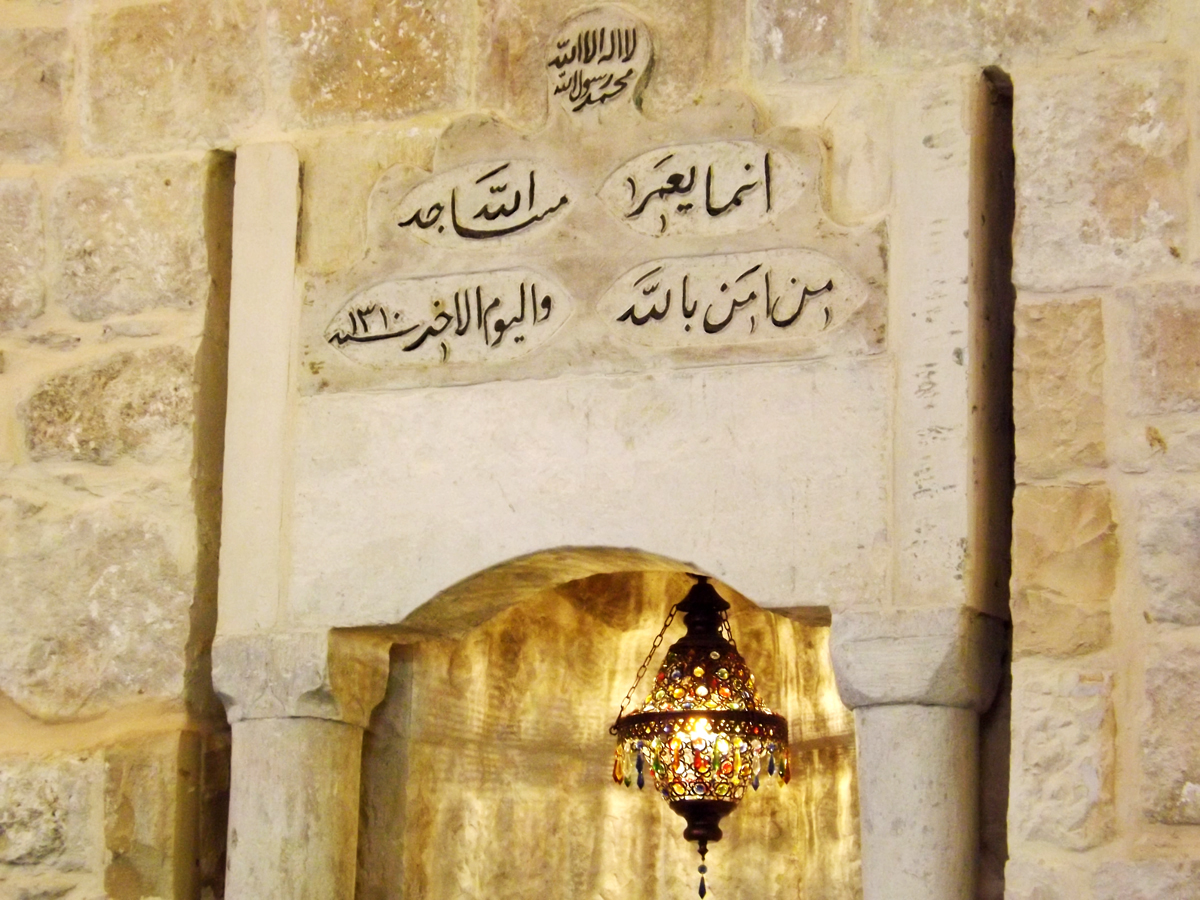 لا اله الا الله
محمد رسول الله
انما يعمر مساجد الله
من امن بالله واليوم الاخر سنه ١٣١٠